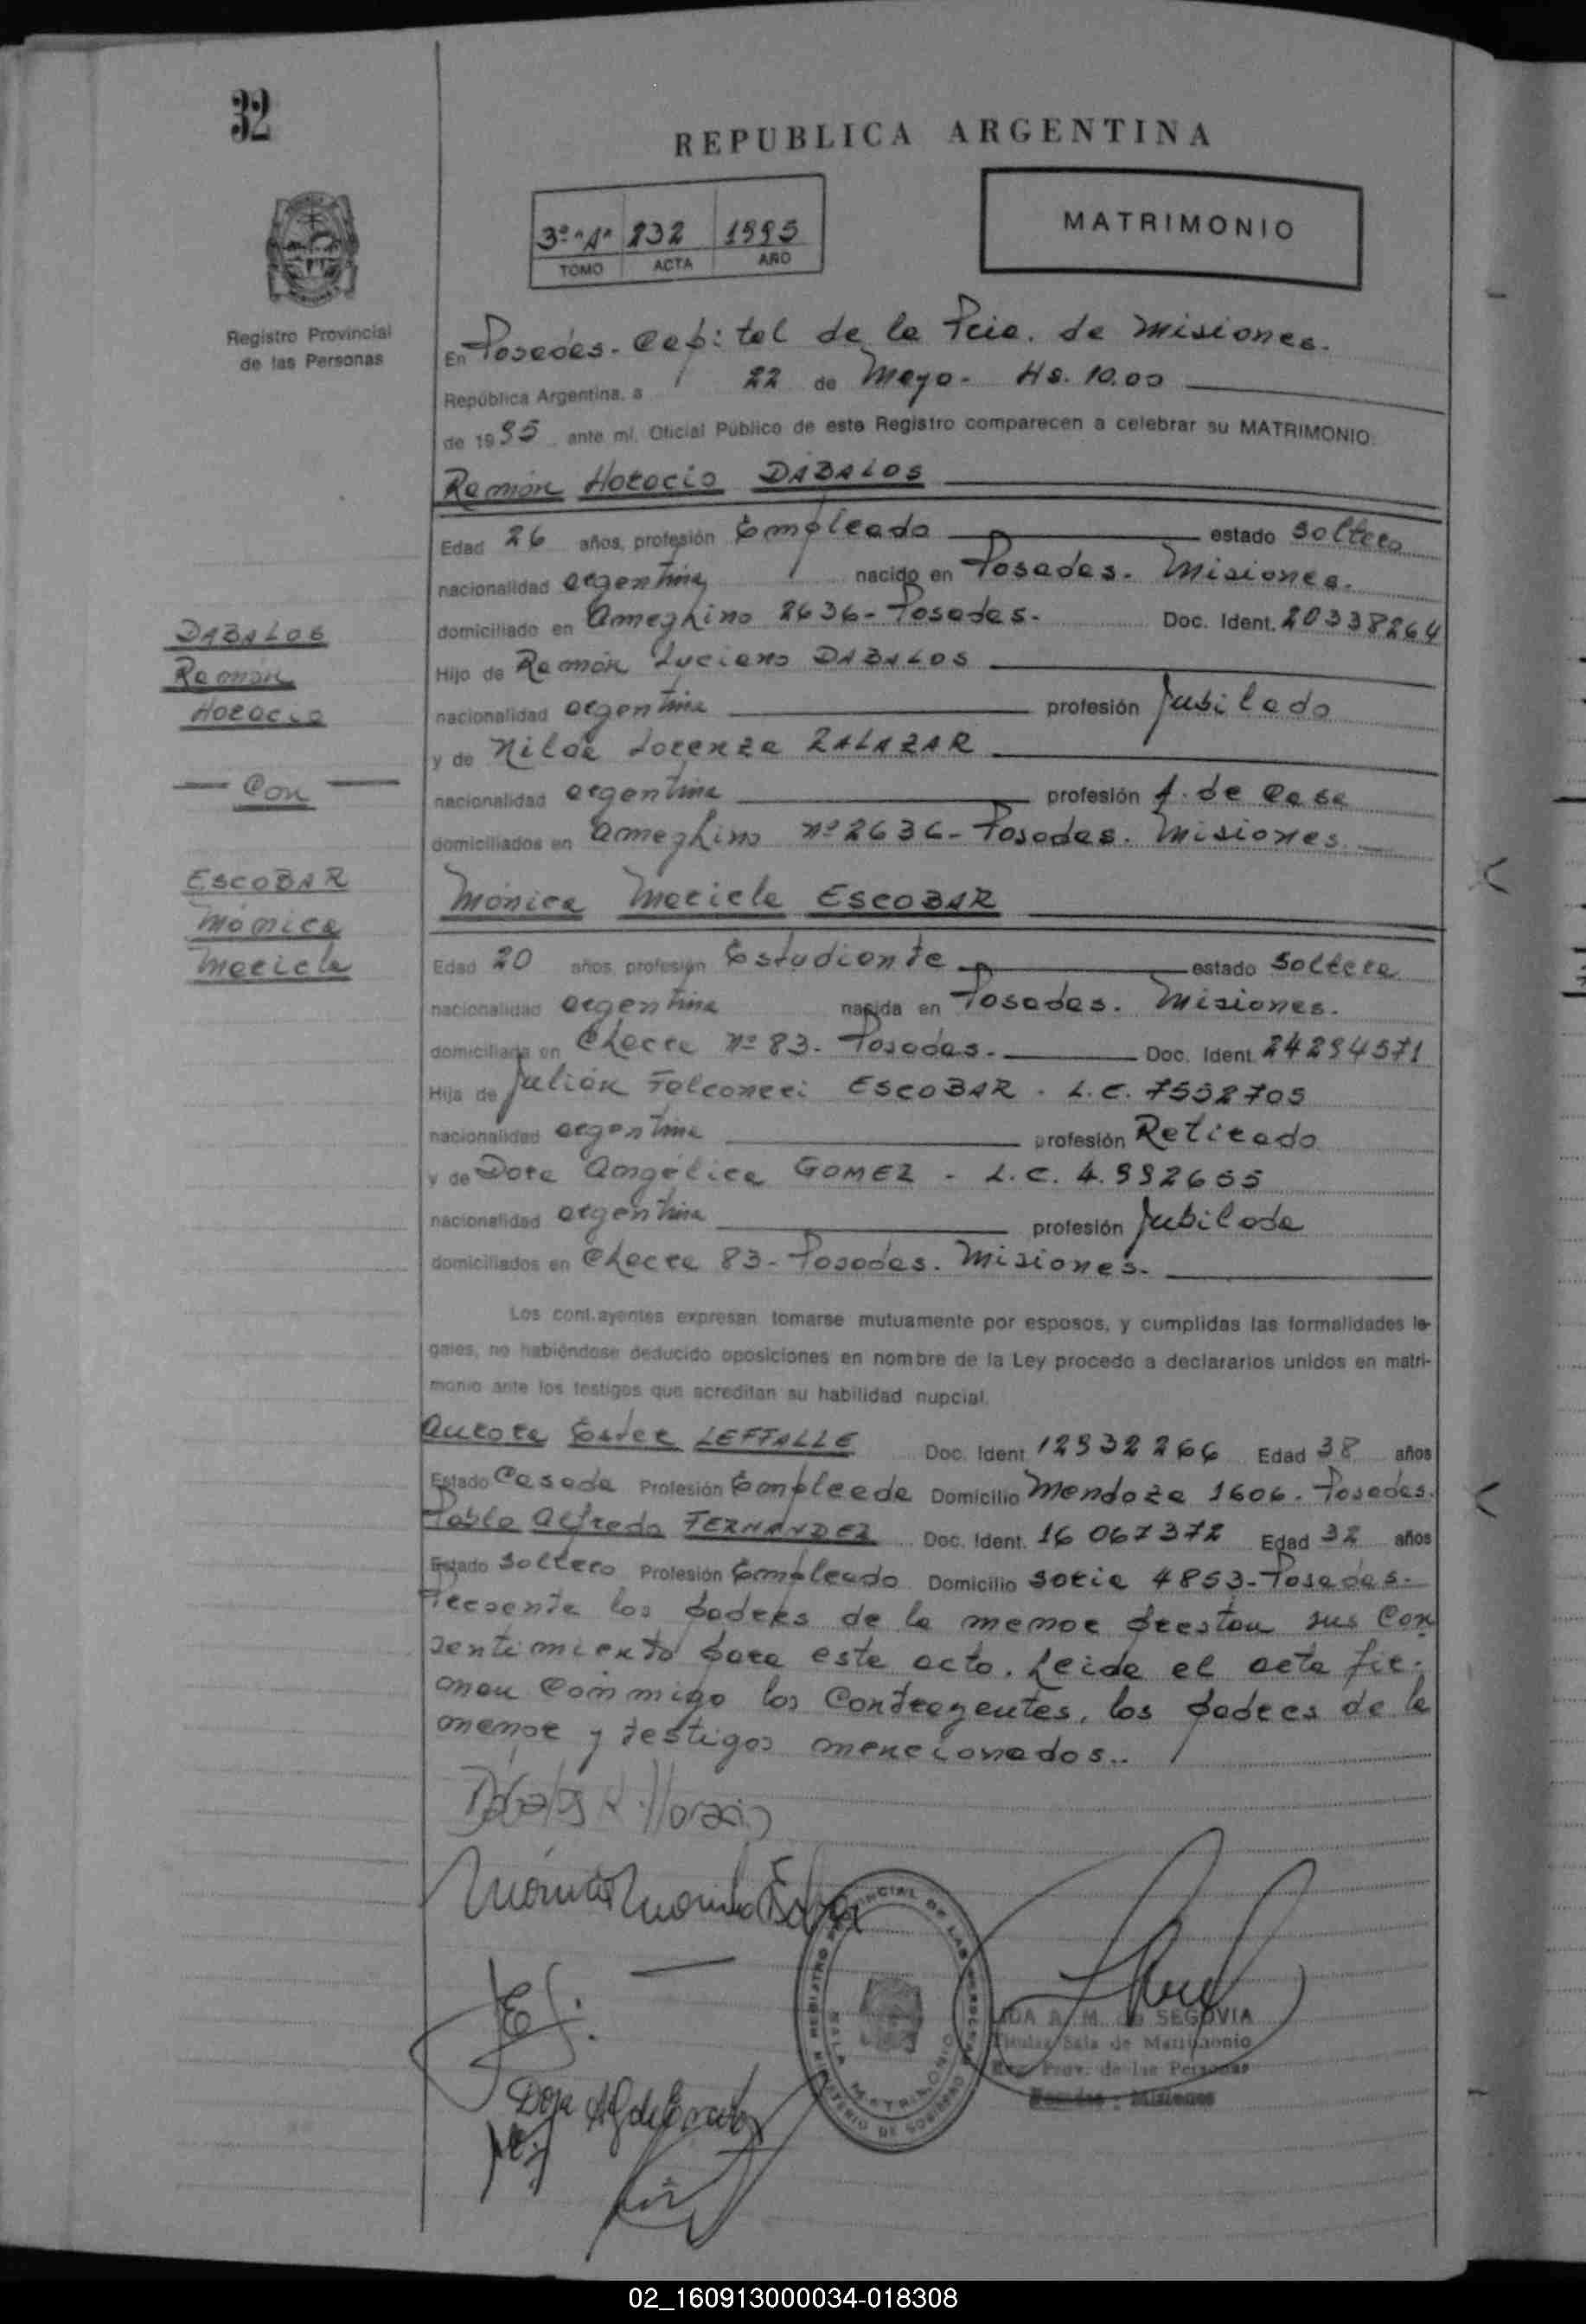 32
REPUBLICA ARGENTINA
3º "A" 232 1995
TOMO ACTA AÑO
MATRIMONIO
Registro Provincial
de las Personas
En Posadas - Capital de la Pcia. de Misiones.
República Argentina, a 22 de Mayo - Hs. 10.00
de 1995 ante mí, Oficial Público de este Registro comparecen a celebrar su MATRIMONIO:
Ramón Horacio DABALOS
Edad 26 años, profesión Empleado estado Soltero
nacionalidad argentina nacido en Posadas. Misiones.
domiciliado en Ameghino 2636 - Posadas. Doc. Ident. 20338264
Hijo de Ramón Luciano DABALOS
nacionalidad argentina profesión Jubilado
y de Nilda Lorenza ZALAZAR
nacionalidad argentina profesión A. de Casa
domiciliados en Ameghino nº 2636 - Posadas. Misiones.
DABALOS
Ramón
Horacio
Con
ESCOBAR
Mónica
Mariela
Mónica Mariela ESCOBAR
Edad 20 años, profesión Estudiante estado Soltera
nacionalidad argentina nacida en Posadas. Misiones.
domiciliada en Chacra nº 83 - Posadas. Doc. Ident. 24294571
Hija de Julián Falconeri ESCOBAR - L.E. 7532705
nacionalidad argentina profesión Retirado
y de Dora Angélica GOMEZ - L.C. 4.992655
nacionalidad argentina profesión Jubilada
domiciliados en Chacra 83 - Posadas. Misiones.
Los contrayentes expresan tomarse mutuamente por esposos, y cumplidas las formalidades le-
gales, no habiéndose deducido oposiciones en nombre de la Ley procedo a declararlos unidos en matri-
monio ante los testigos que acreditan su habilidad nupcial.
Aurora Ester LEFFALLE Doc. Ident 12932266 Edad 38 años
Estado Casada Profesión Empleada Domicilio Mendoza 1606 - Posadas.
Pablo Alfredo FERNANDEZ Doc. Ident. 16 067372 Edad 32 años
Estado Soltero Profesión Empleado Domicilio Soria 4853 - Posadas.
Presente los padres de la menor prestan sus Con
sentimiento para este acto. Leida el acta fir-
man conmigo los Contrayentes, los padres de la
menor y testigos mencionados..
Dábalos R. Horacio
Mónica Mariela Escobar
REGISTRO PROVINCIAL DE LAS PERSONAS
MINISTERIO DE GOBIERNO
SALA MATRIMONIO
A. M. de SEGOVIA
Titular Sala de Matrimonio
Reg. Prov. de las Personas
Posadas - Misiones
Dora AG de Escobar
02_160913000034-018308